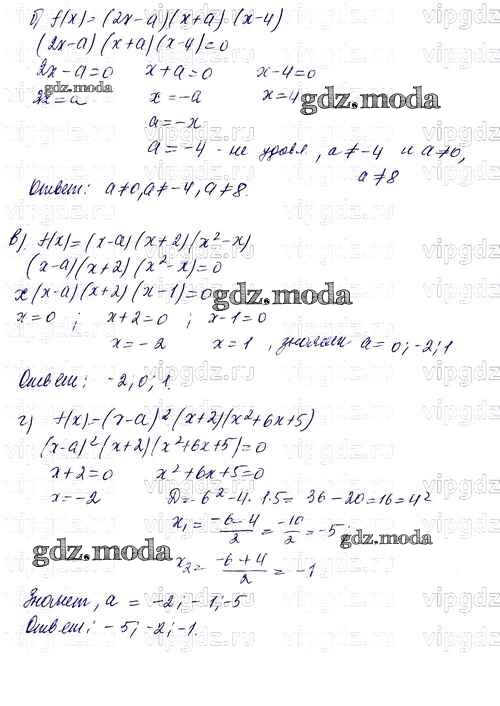 б) f(x)=(2x-a)(x+a)(x-4)
(2x-a)(x+a)(x-4)=0
2x-a=0 x+a=0 x-4=0
2x=a x=-a x=4
a=-x
a=-4 - не удовл, a≠-4 и a≠0,
a≠8
Ответ: a≠0, a≠-4, a≠8.
в). f(x)=(x-a)(x+2)(x²-x)
(x-a)(x+2)(x²-x)=0
x(x-a)(x+2)(x-1)=0
x=0 ; x+2=0 ; x-1=0
x=-2 x=1 , значит a=0;-2;1
Ответ: -2;0;1.
г) f(x)=(x-a)²(x+2)(x²+6x+5)
(x-a)²(x+2)(x²+6x+5)=0
x+2=0 x²+6x+5=0
x=-2 D=6²-4·1·5=36-20=16=4²
x₁= -6-4/2 = -10/2 = -5;
x₂= -6+4/2 = -1
Значит, a=-2;-1;-5
Ответ; -5;-2;-1.
gdz.moda
gdz.moda
gdz.moda
gdz.moda
gdz.moda
vipgdz.ru